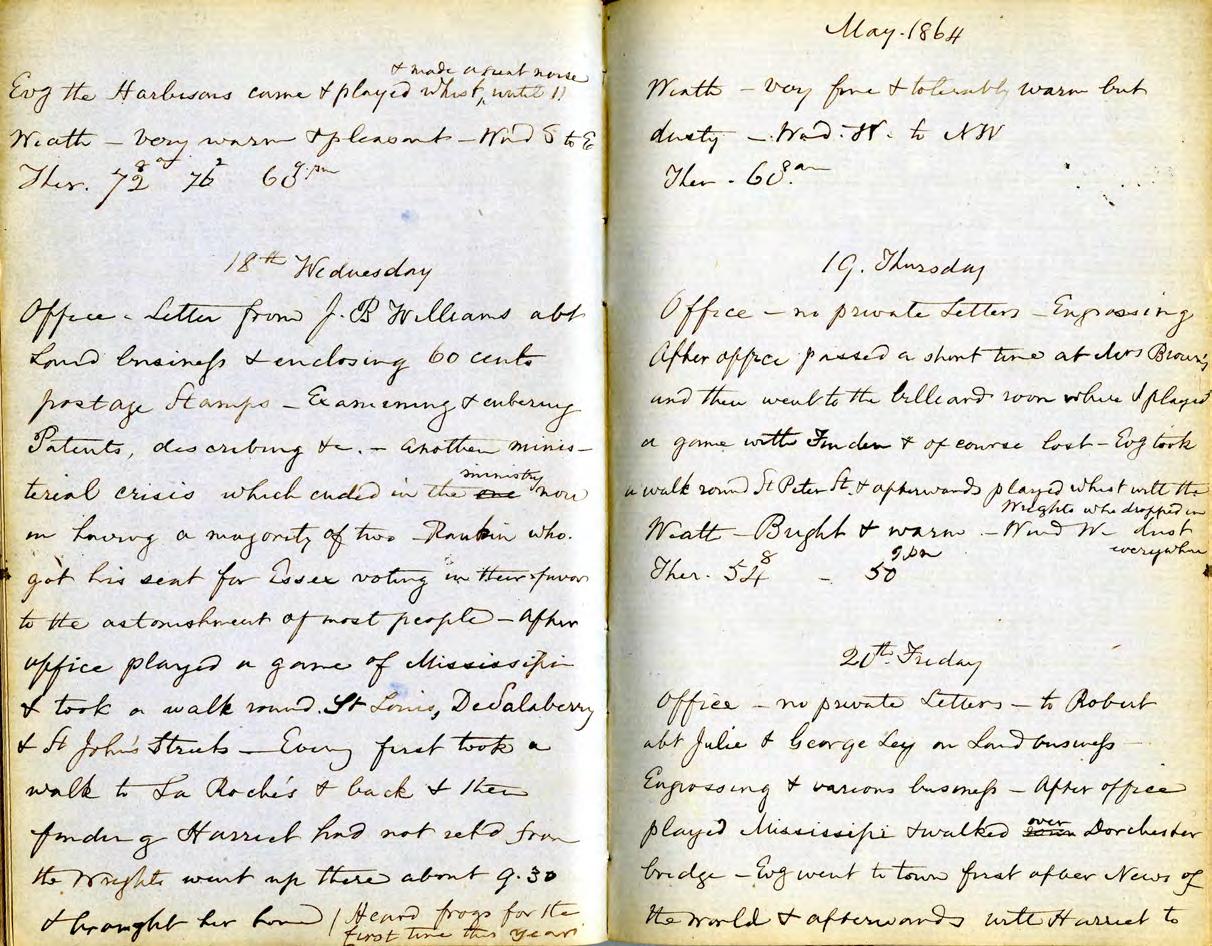 & made a great noise
Evg the Harbisons came & played whist, until 11
Weath – very warm & pleasant – Wind S to E
Ther. 72 8 am 76 2 68 9 pm
18th Wednesday
Office – Letter from J. B Williams abt
Land business & enclosing 60 cents
postage Stamps – Examining & entering
Patents, describing &c. – another minis-
terial crisis which ended in the one ministry now
in having a majority of two – Rankin who.
got his seat for Essex voting in their favor
to the astonishment of most people – After
office played a game of Mississipi
& took a walk round St Louis, DeSalaberry
& St John's Streets – Eveng first took a
walk to La Roche's & back & then
finding Harriet had not ret'd from
the Wrights went up there about 9.30
& brought her home (Heard frogs for the
first time this year
May. 1864
Weath – very fine & tolerably warm but
dusty – Wind W. to NW
Ther – 60 8 am
19. Thursday
Office – no private Letters – Engrossing
After office passed a short time at Mrs Brown's
and then went to the billiard room where I played
a game with Finden & of course lost – Evg took
a walk round St Peter St. & afterwards played whist with the
Wrights who dropped in
Weath – Bright & warm – Wind W – dust
everywhere
Ther. 54 8 – 50 9 pm
20th. Friday
Office – no private Letters – to Robert
abt Julie & George Ley on Land business –
Engrossing & various business – After office
played Mississipi & walked down over Dorchester
bridge – Evg went to town first after News of
the World & afterwards with Harriet to